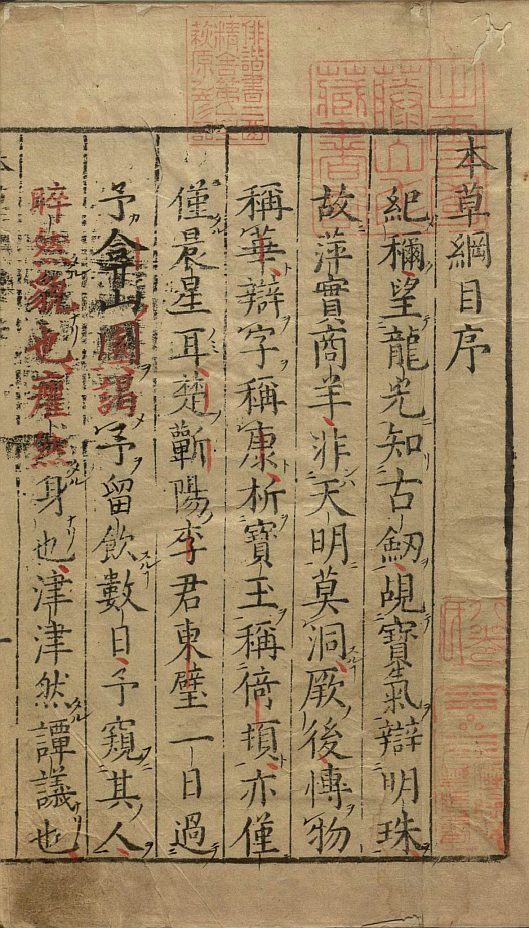 本草綱目序
紀稱望龍光知古劒覘寶氣辯明珠
故萍實商羊非天明莫洞厥後愽物
稱華辯字稱康析寶玉稱倚頓亦僅
僅晨星耳楚蘄陽李君東璧一日過
予弇山園謁予留飲數日予窺其人
睟然貌也癯然身也津津然譚議也